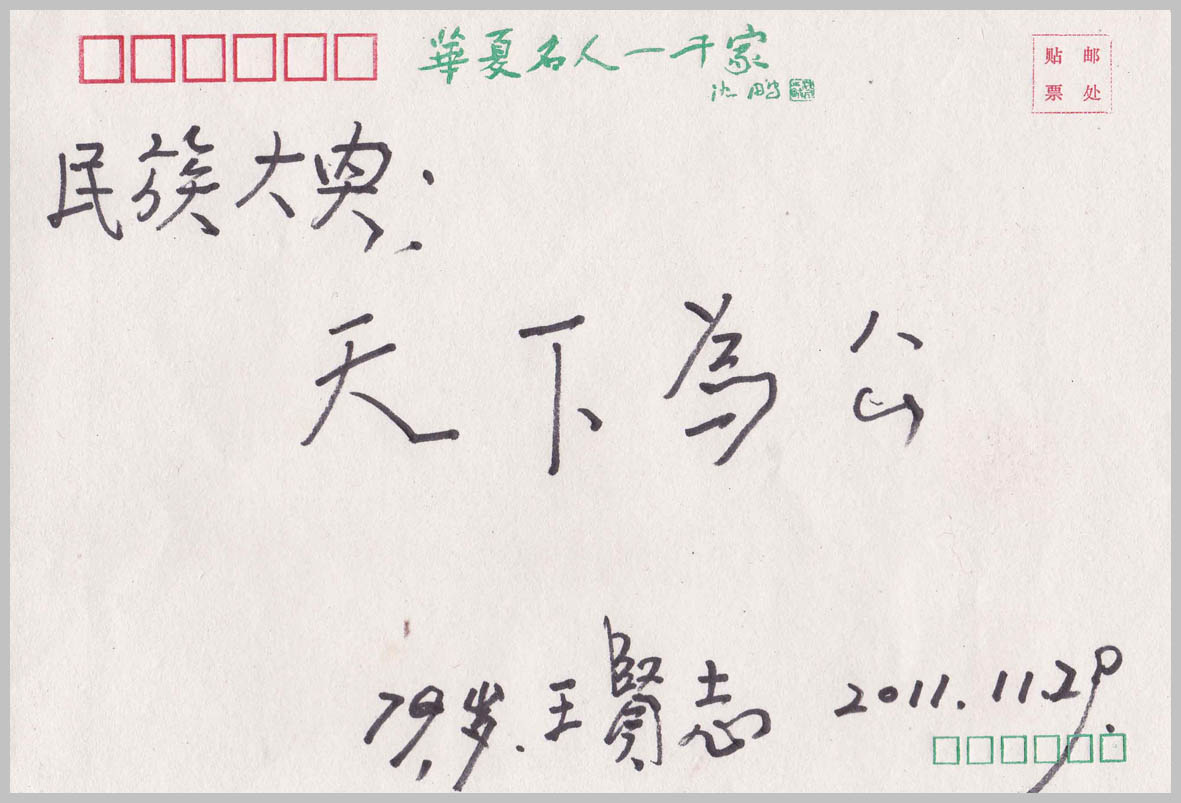 華夏名人一千家
沈鹏
贴邮
票处
民族大奥：
天下為公
79岁.王賢志 2011.11.29.